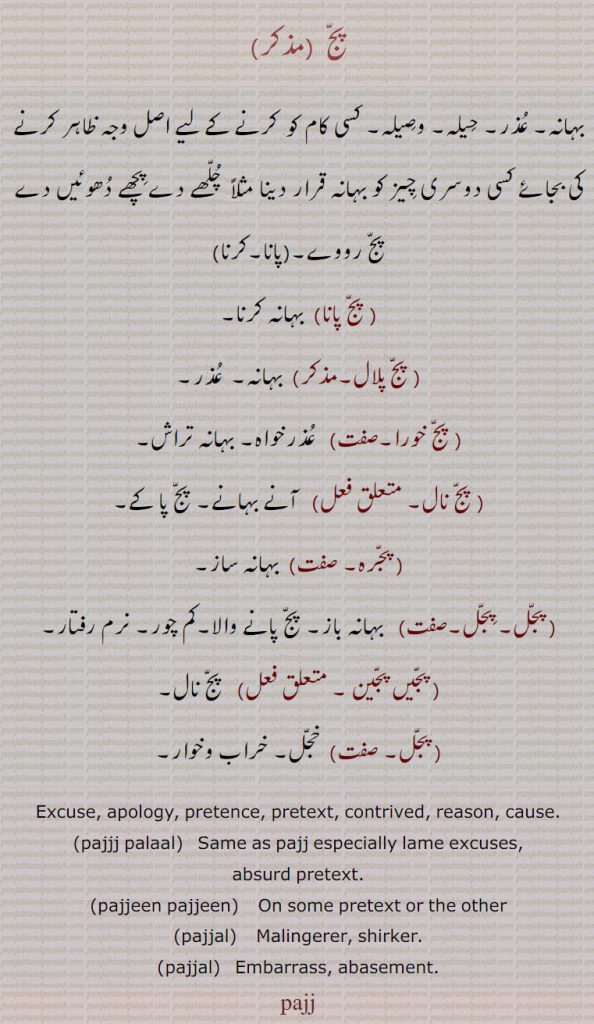 پجّ (مذکر)
بہانہ۔ عُذر۔ حِیلہ۔ وصِیلہ۔ کسی کام کو کرنے کے لیے اصل وجہ ظاہر کرنے
کی بجائے کسی دوسری چِیز کو بہانہ قرار دینا مثلاً چُلّھے دے پِچھے دُھوئیں دے
پجّ رووے۔(پانا۔کرنا)
(پجّ پانا) بہانہ کرنا۔
(پجّ پلال۔مذکر) بہانہ۔ عُذر۔
(پجّ خورا۔صفت) عُذر خواہ۔ بہانہ تراش۔
(پجّ نال۔ متعلق فعل) آنے بہانے۔ پجّ پا کے۔
(پجّرہ۔ صفت) بہانہ ساز۔
(پجّل۔پِجّل۔صفت) بہانہ باز۔ پجّ پانے والا۔کم چور۔ نرم رفتار۔
(پجّیں پجّین ۔ متعلق فعل) پجّ نال۔
(پجّل۔ صفت) خجّل۔ خراب وخوار۔
Excuse, apology, pretence, pretext, contrived, reason, cause.
(pajjj palaal) Same as pajj especially lame excuses,
absurd pretext.
(pajjeen pajjeen) On some pretext or the other
(pajjal) Malingerer, shirker.
(pajjal) Embarrass, abasement.
pajj